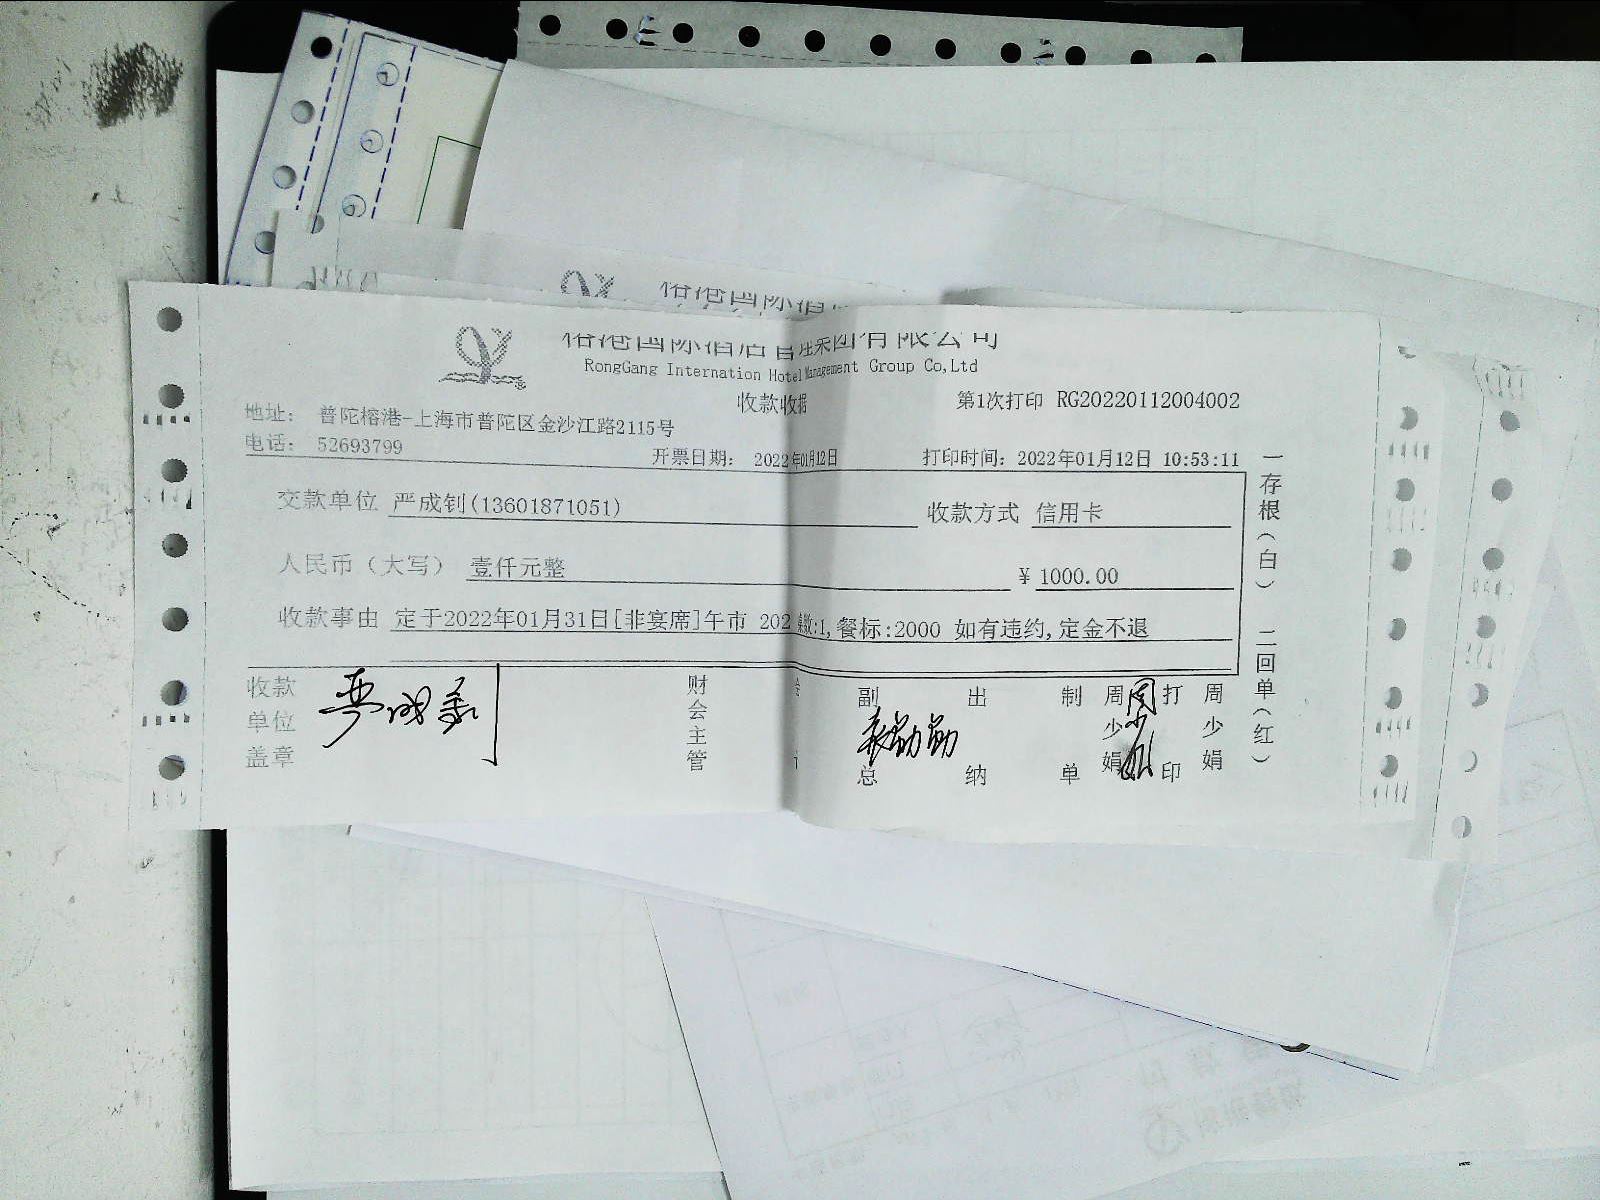 榕港国际酒店管理集团有限公司
RongGang Internation Hotel Management Group Co,Ltd
收款收据
第1次打印 RG20220112004002
地址： 普陀榕港-上海市普陀区金沙江路2115号
电话： 52693799
开票日期： 2022年01月12日
打印时间：2022年01月12日 10:53:11
交款单位 严成钊(13601871051)
收款方式 信用卡
人民币（大写） 壹仟元整
¥ 1000.00
收款事由 定于2022年01月31日[非宴席]午市 202 桌数:1,餐标:2000 如有违约,定金不退
收款单位盖章
财会主管
副总
出纳
制单
周少娟
周少娟
打印
周少娟
一存根（白） 二回单（红）